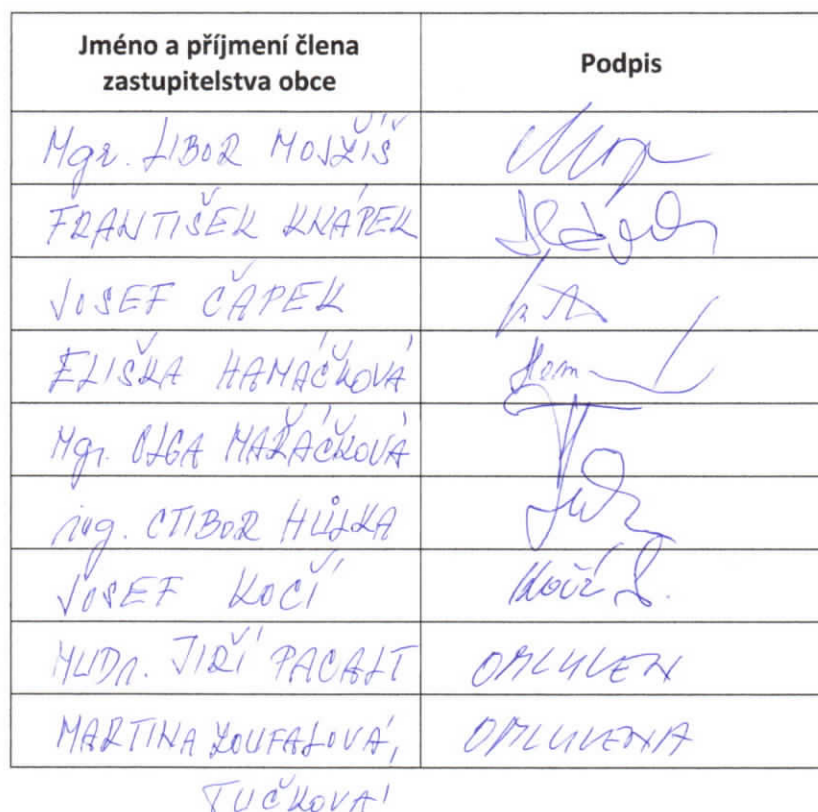 Jméno a příjmení člena
zastupitelstva obce
Podpis
Mgr. LIBOR MOJŽÍŠ
FRANTIŠEK KNÁPEK
JOSEF ČAPEK
ELIŠKA HAMÁČKOVÁ
Mgr. OLGA MAŘÁČKOVÁ
ing. CTIBOR HŮLKA
JOSEF KOČÍ Kočí J.
MUDr. JIŘÍ PACALT OMLUVEN
MARTINA ZOUFALOVÁ, OMLUVENA
TUČKOVÁ